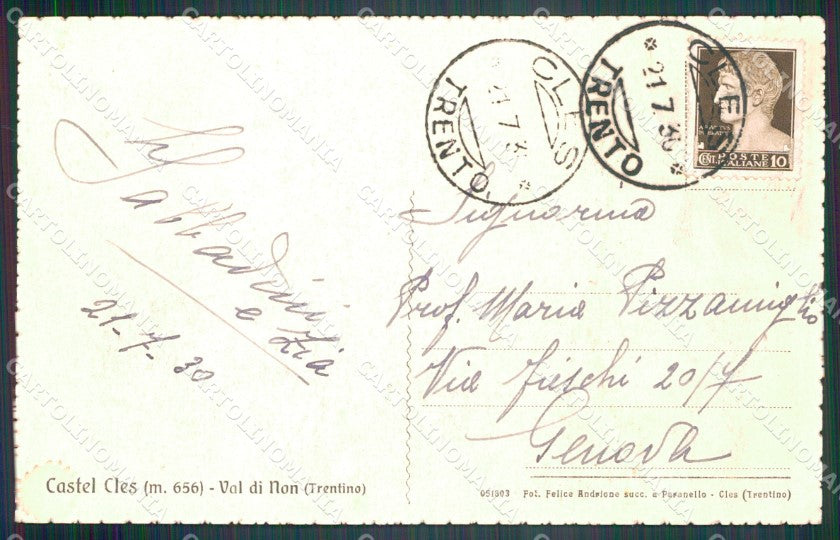 CLES
TRENTO
21 7 30
CLES
TRENTO
21 7 30
POSTE
ITALIANE
CENT. 10
Sabbadini
e Zia
21-7-30
Signorina
Prof. Maria Pizzamiglio
Via Fieschi 20/7
Genova
Castel Cles (m. 656) - Val di Non (Trentino)
Fot. Felice Andrione succ. a - Cles (Trentino)
CARTOLINOMANIA